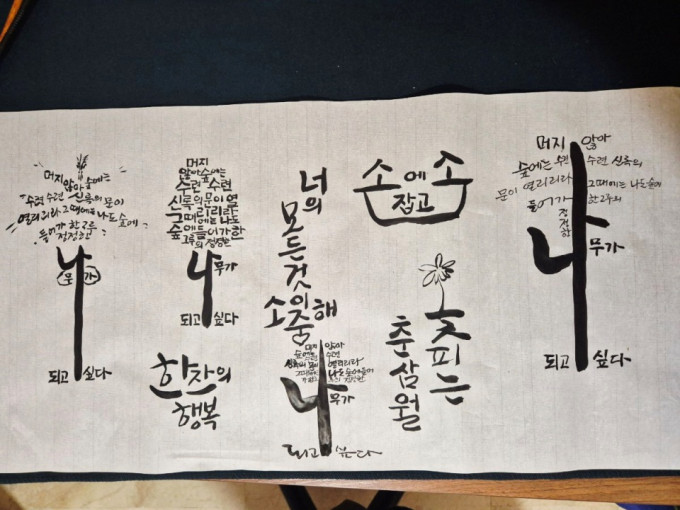 머지
않아 숲에는
수런 수런 신록의 문이
열리리라 그때에는 나도 숲에
들어가 한 그루의
정정한
나
무가
되고 싶다
머지
않아 숲에는
수런 수런
신록의 문이 열
리리라
그때에는 나도
숲에 들어가 한
그루의 정정한
나
무가
되고 싶다
한잔의
행복
너의
모든것
이
소중해
머지 않아
숲에는 수런
수런
신록의 문이 열리리라
그때에는 나도 숲에 들어
나
무가
되고 싶다
소에소
잡고
꽃피는
춘삼월
머지 않아
숲에는 수런 수런 신록의
문이 열리리라 그때에는 나도 숲에
들어가 한그루의
정정한
나
무가
되고 싶다